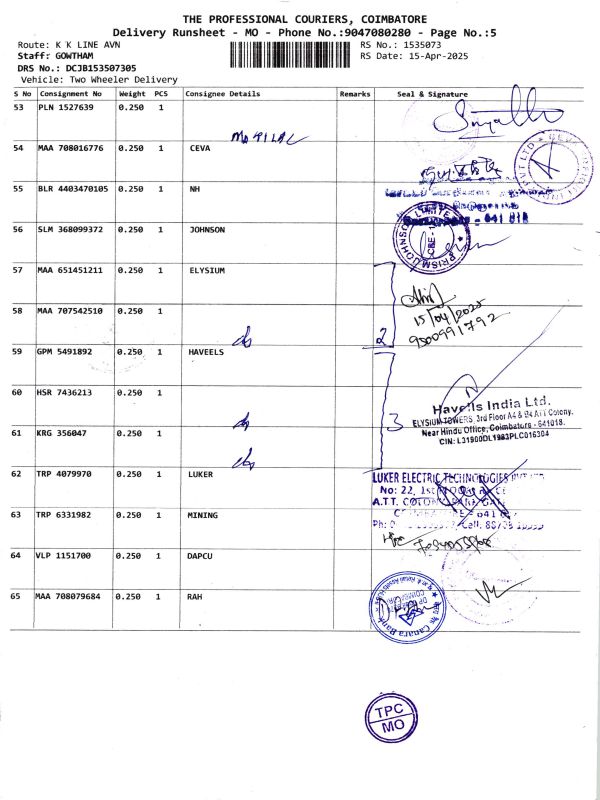 THE PROFESSIONAL COURIERS, COIMBATORE
Delivery Runsheet - MO - Phone No.:9047080280 - Page No.:5
Route: K K LINE AVN
RS No.: 1535073
Staff: GOWTHAM
RS Date: 15-Apr-2025
DRS No.: DCJB153507305
Vehicle: Two Wheeler Delivery
S No Consignment No Weight PCS Consignee Details Remarks Seal & Signature
53 PLN 1527639 0.250 1
54 MAA 708016776 0.250 1 CEVA
55 BLR 4403470105 0.250 1 NH
641 018
56 SLM 368099372 0.250 1 JOHNSON
PRISM JOHNSON LIMITED
57 MAA 651451211 0.250 1 ELYSIUM
15/04/2025
9500991792
58 MAA 707542510 0.250 1
2
59 GPM 5491892 0.250 1 HAVEELS
60 HSR 7436213 0.250 1
3
Havells India Ltd.
ELYSIUM TOWERS, 3rd Floor A4 & B4 ATT Colony,
Near Hindu Office, Coimbatore - 641018.
CIN: L31900DL1983PLC016304
61 KRG 356047 0.250 1
62 TRP 4079970 0.250 1 LUKER
LUKER ELECTRIC TECHNOLOGIES PVT LTD
No: 22, 1st FLOOR
A.T.T. COLONY
63 TRP 6331982 0.250 1 MINING
64 VLP 1151700 0.250 1 DAPCU
65 MAA 708079684 0.250 1 RAH
Canara Bank
TPC
MO